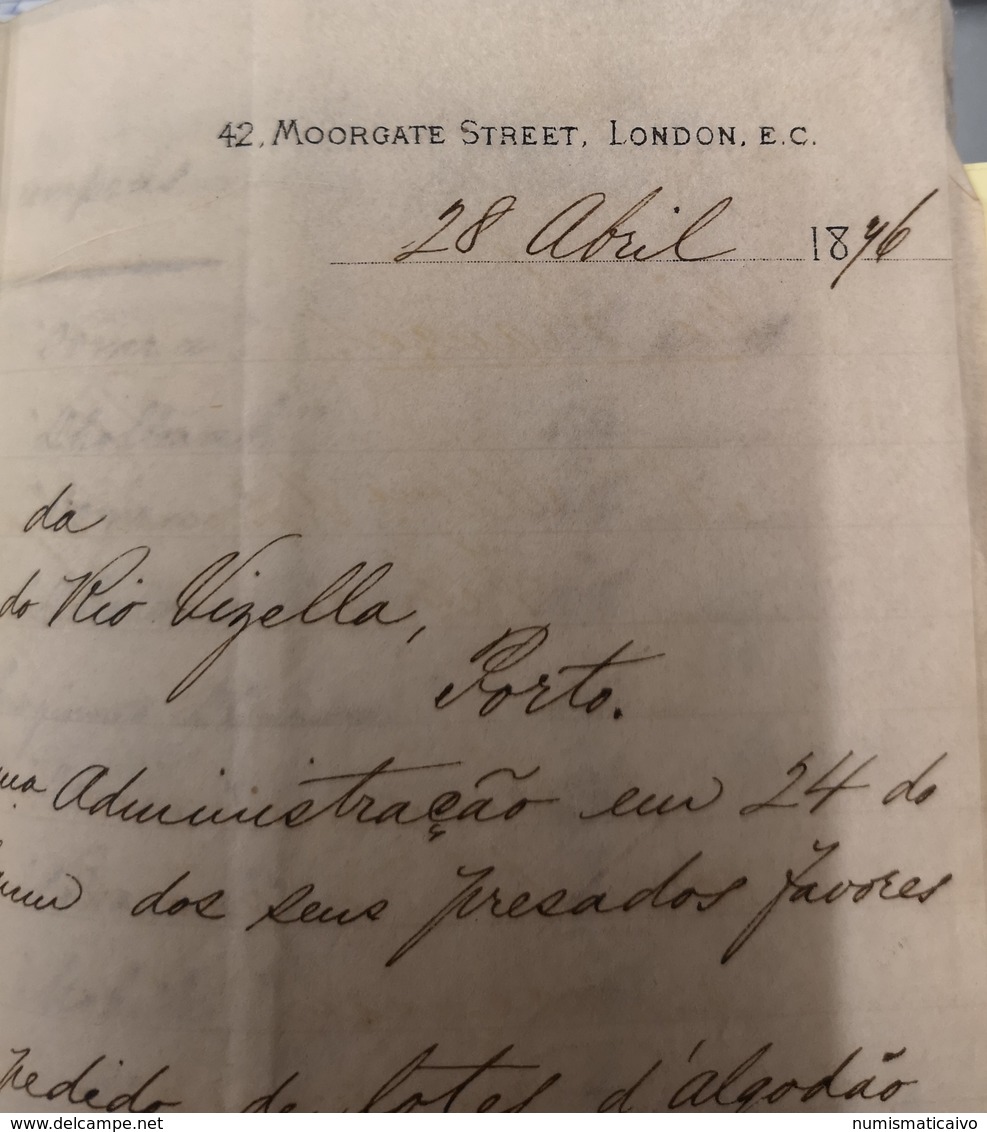 42, MOORGATE STREET, LONDON, E.C.
28 Abril 1876
da
do Rio Vizella,
Porto.
Administração em 24 do
dos seus presados favores
pedido de lotes d'algodão
delcampe.net
numismaticaivo